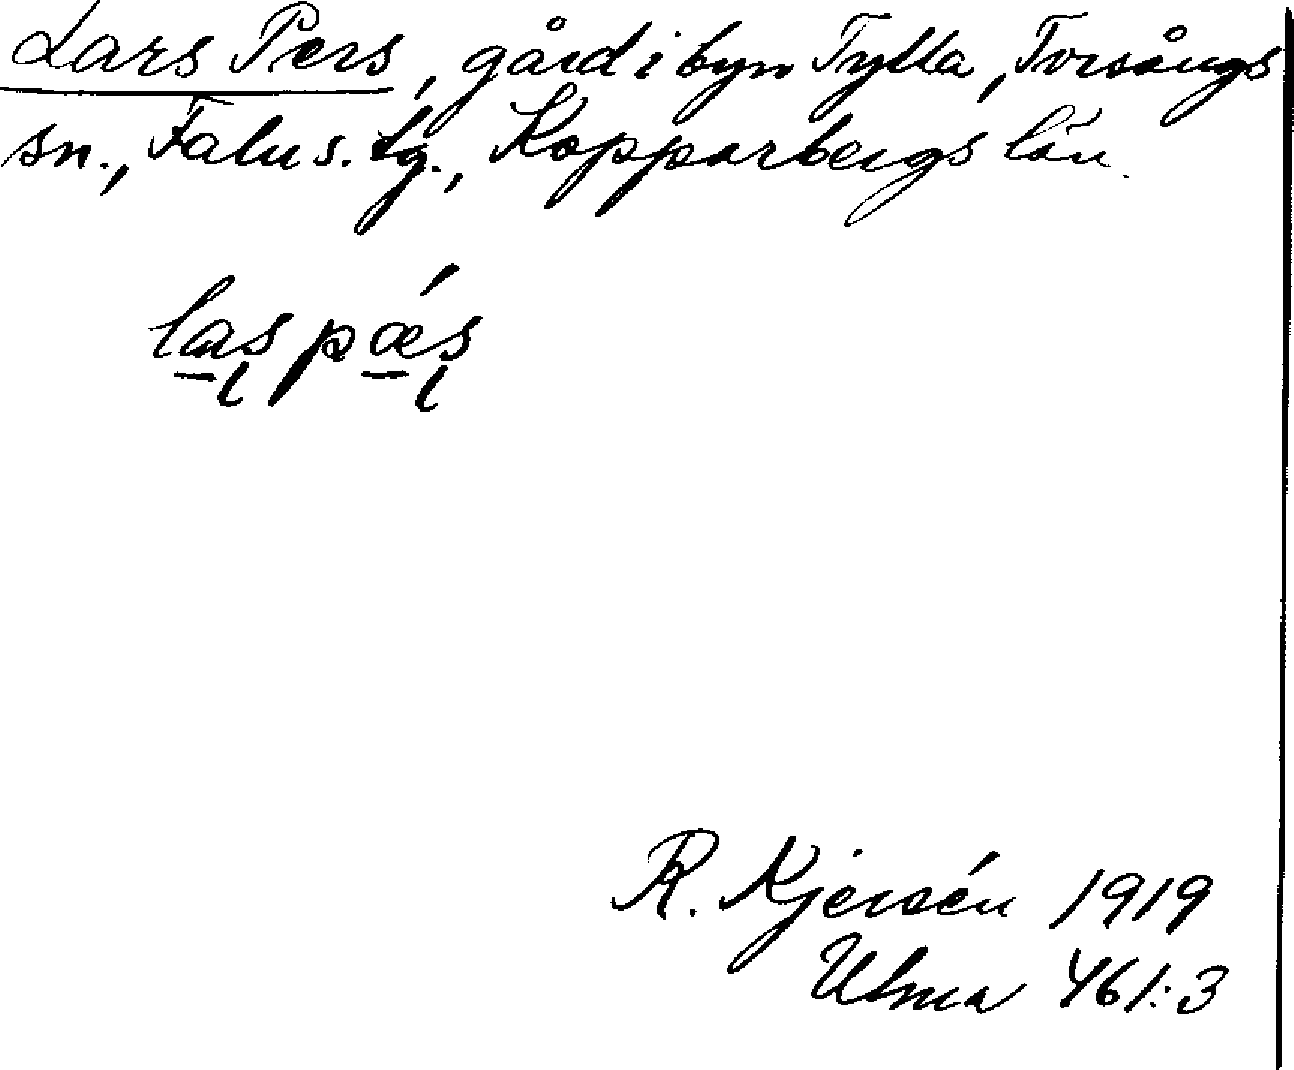 Lars Pers, gård i byn Tylla, Torsångs
sn., Falu s. tg., Kopparbergs län.
las pǽs
R. Kjersén 1919
Ulma 461:3